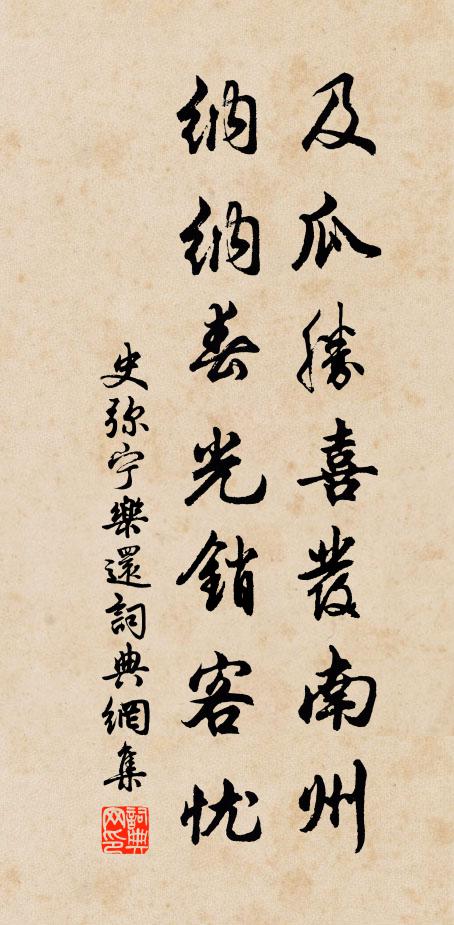 及瓜勝喜發南州
纳纳春光銷客忧
史弥宁樂還詞典網集
詞典网印